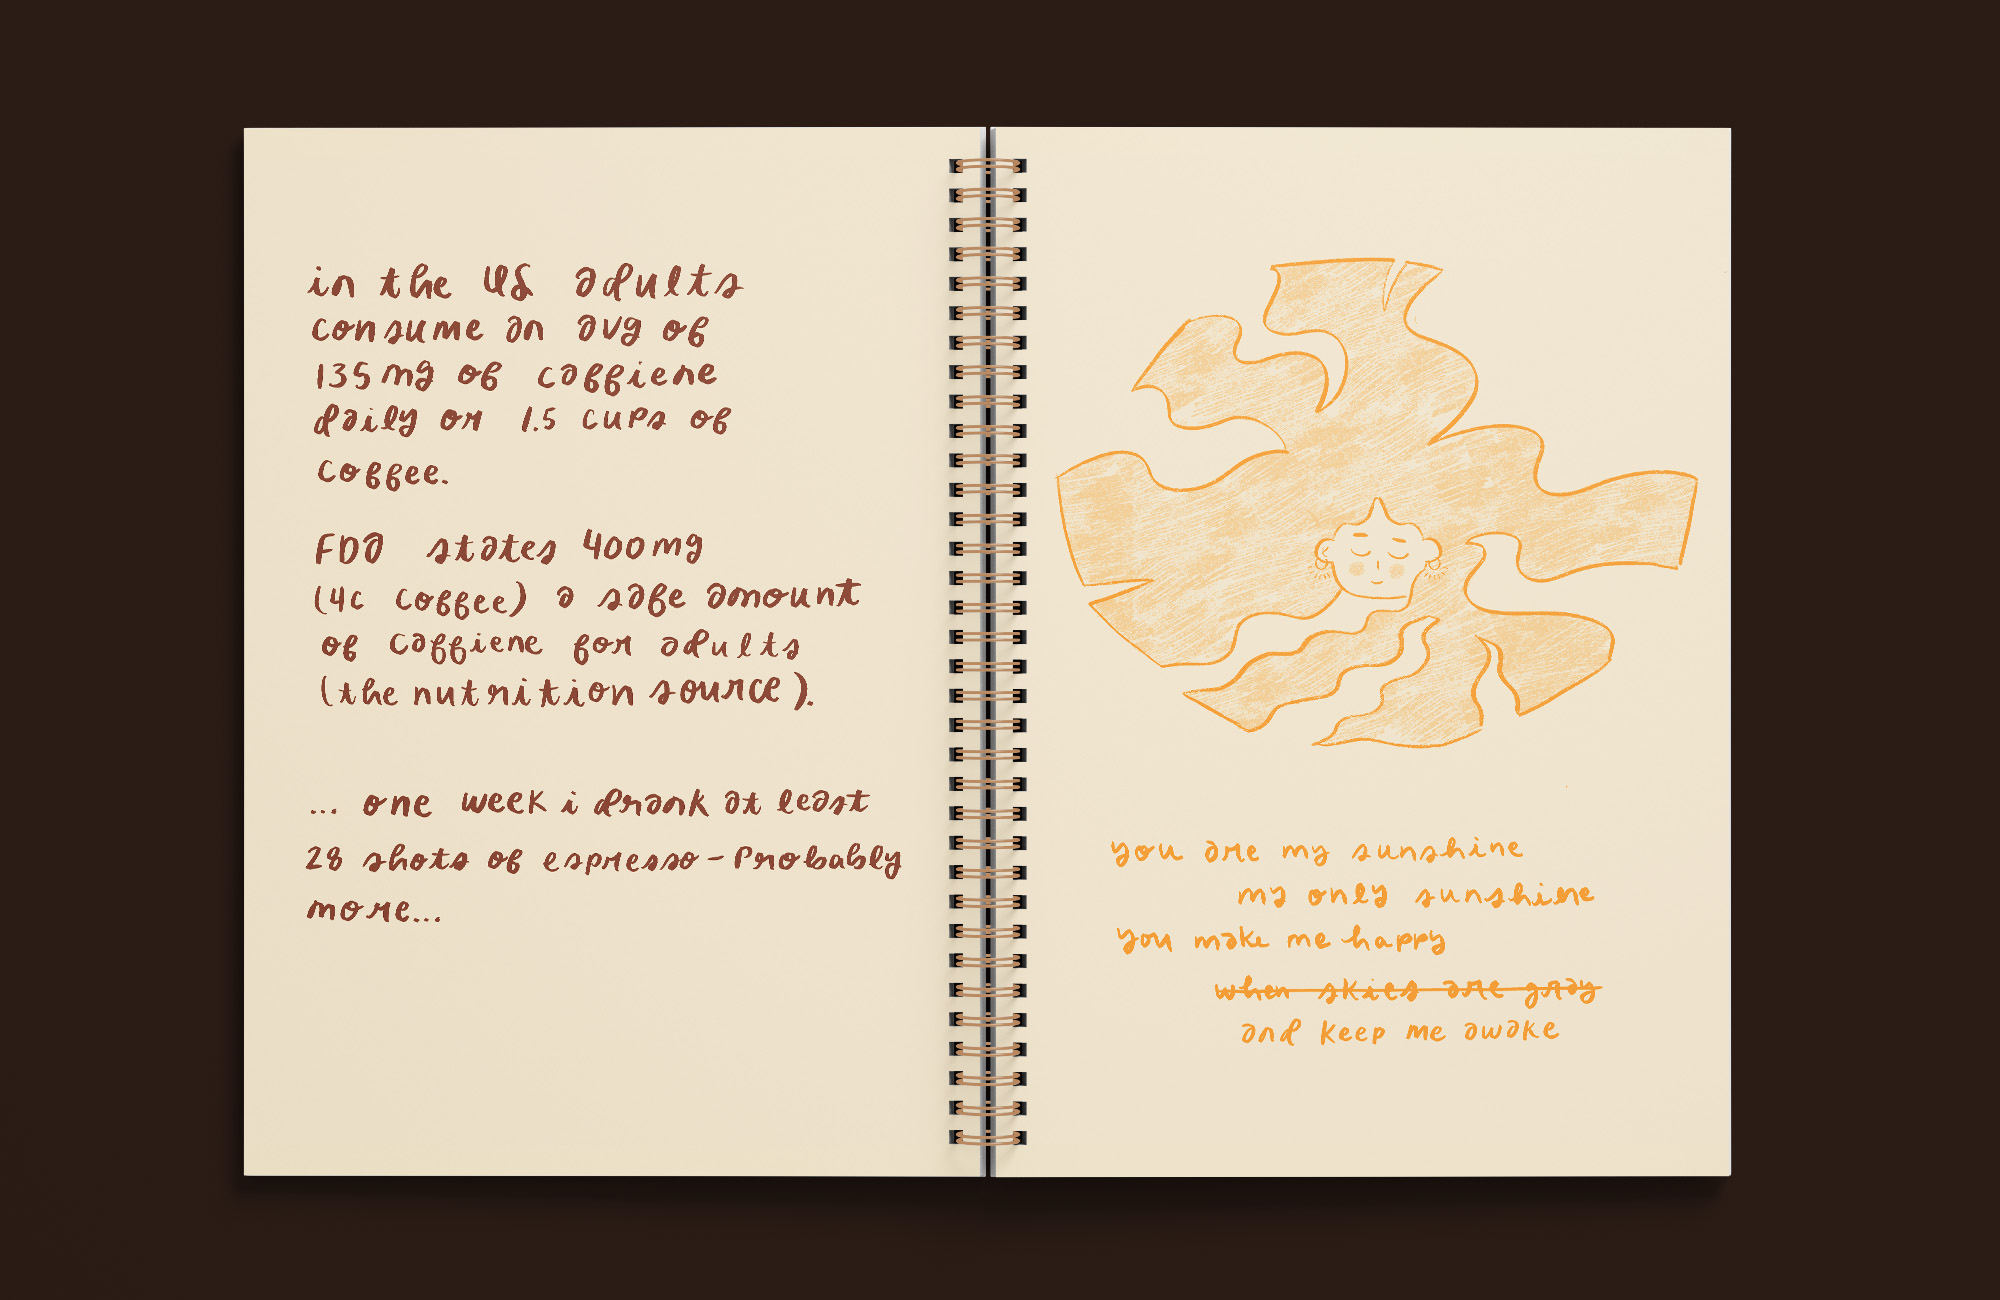 in the US adults
consume an avg of
135mg of caffiene
daily or 1.5 cups of
coffee.
FDA states 400mg
(4c coffee) a safe amount
of caffiene for adults
(the nutrition source).
... one week i drank at least
28 shots of espresso - Probably
more...
you are my sunshine
my only sunshine
you make me happy
when skies are gray
and keep me awake